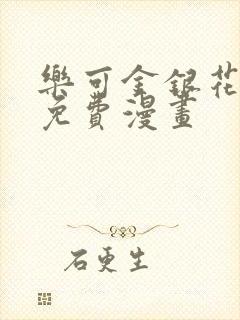 樂可金銀花
免費漫畫
石更生